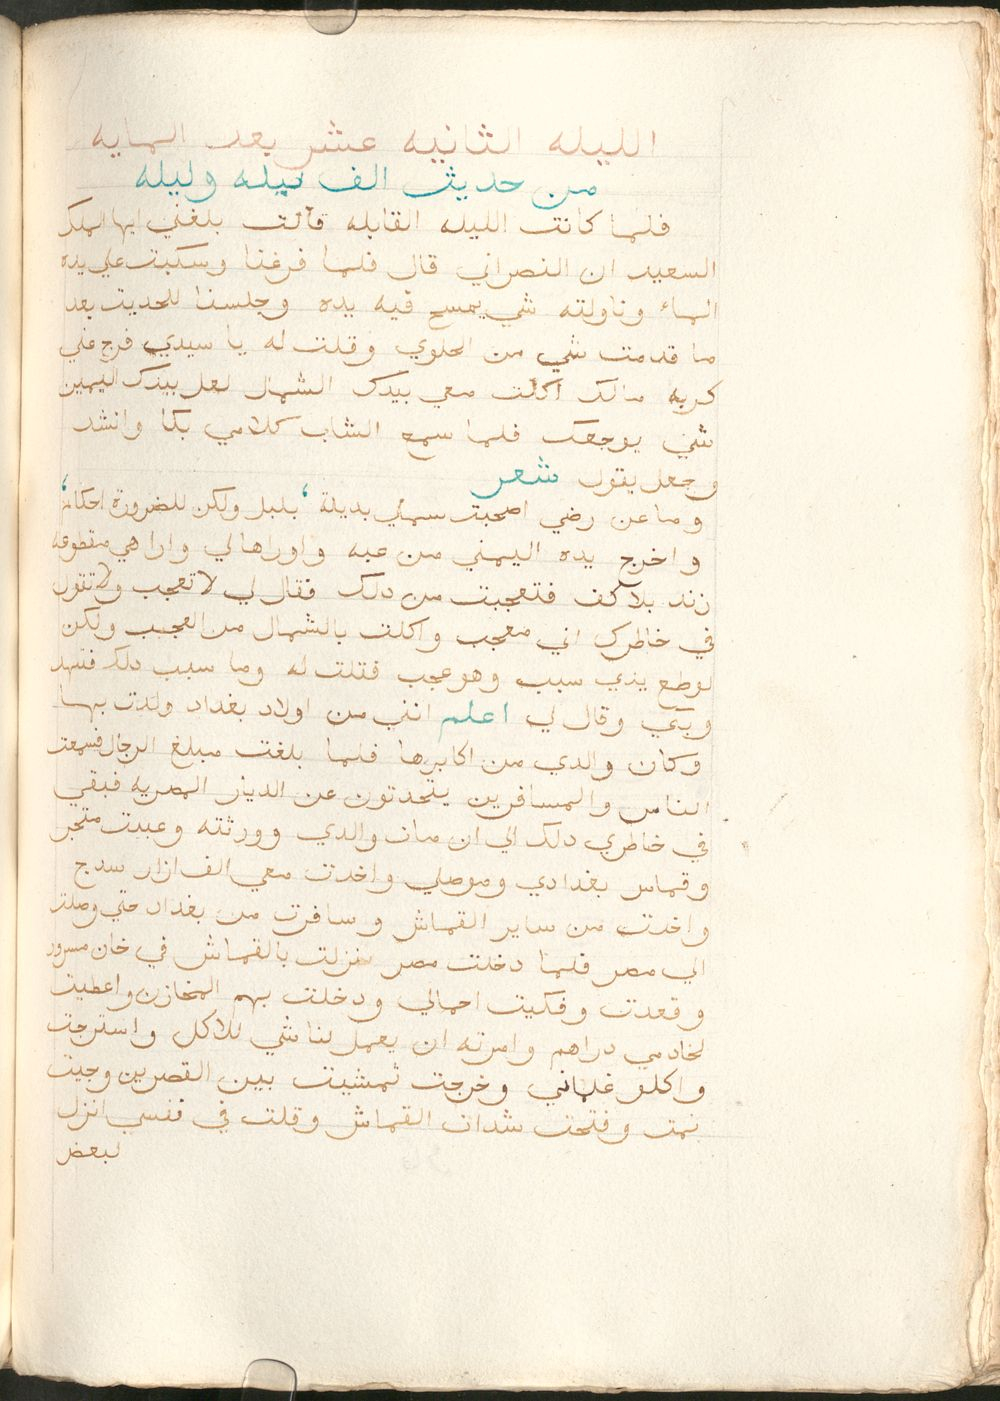 الليله الثانيه عشر بعد المايه
من حديث الف ليله وليله
فلما كانت الليله القابله قالت بلغني ايها الملك
السعيد ان النصراني قال فلما فرغنا وسكبت علي يده
الماء وناولته شي يمسح فيه يده وجلسنا للحديث بعد
ما قدمت شي من الحلوي وقلت له يا سيدي فرج عني
كربه مالك اكلت معي بيدك الشمال لعل بيدك اليمين
شي يوجعك فلما سمع الشاب كلامي بكا وانشد
وجعل يقول شعر
وما عن رضي اصحبت سملي بديلة ، بليل ولكن للضرورة احكام ،
واخرج يده اليمني من عبه واوراها لي وارا هي مقطوعه
زند بلا كف فتعجبت من دلك فقال لي لا تعجب ولا تقول
في خاطرك اني معجب واكلت بالشمال من العجب ولكن
لوطع يدي سبب وهو عجب فقلت له وما سبب دلك فتنهد
وبكي وقال لي اعلم انني من اولاد بغداد ولدت بها
وكان والدي من اكابرها فلما بلغت مبلغ الرجال فسمعت
الناس والمسافرين يتحدتون عن الديار المصريه فبقي
في خاطري دلك الي ان مات والدي وورثته وعبيت متجر
وقماس بغدادي وموصلي واخدت معي الف ازار سدج
واخدت من ساير القماش وسافرت من بغداد حتي وصلت
الي مصر فلما دخلت مصر نزلت بالقماش في خان مسرور
وقعدت وفكيت احمالي ودخلت بهم المخازن واعطيت
لخادمي دراهم وامرته ان يعمل لنا شي للاكل واسترحت
واكلو غلماني وخرجت تمشيت بين القصرين وجيت
نمت وفتحت شدات القماش وقلت في نفسي انزل
لبعض